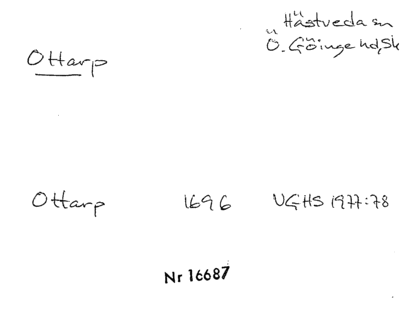 Hästveda sn
Ottarp Ö. Göinge hd, Sk
Ottarp 1696 VGHS 1977:78
Nr 16687